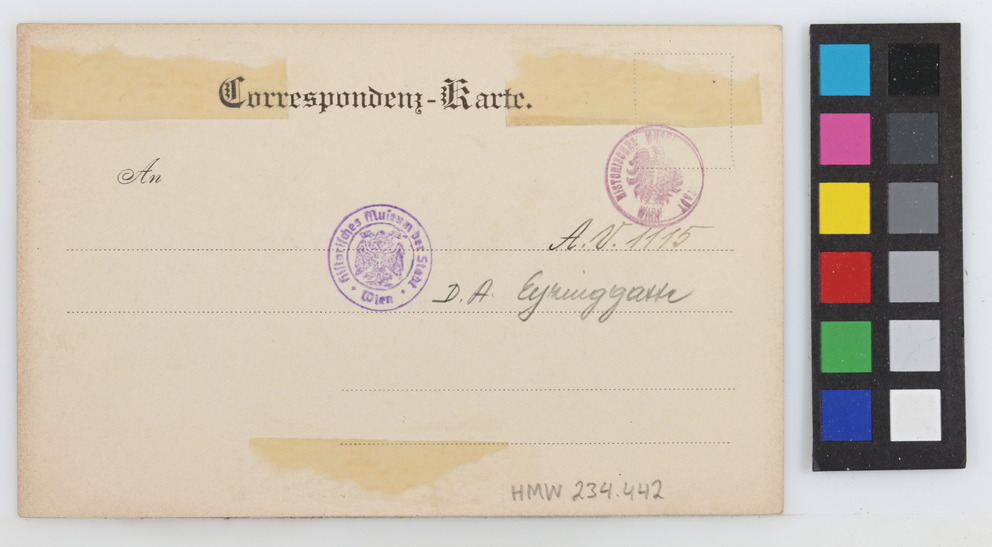 Correspondenz-Karte.
An
HISTORISCHES STADT WIEN
A.V. 1115
Historisches Museum der Stadt Wien
D. A. Eyzinggasse
HMW 234.442